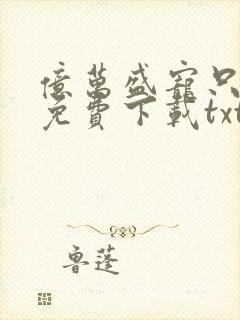 億萬盛寵只
免費下載txt
魯蓬